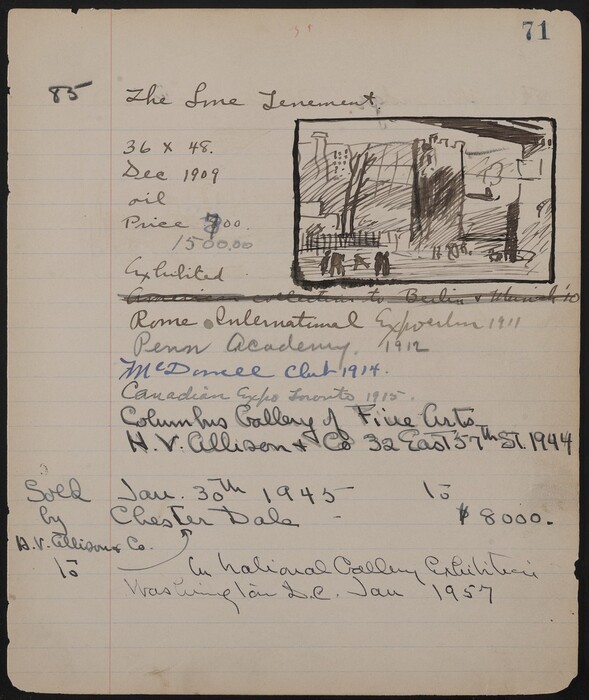 71
85 The Lone Tenement.
36 x 48.
Dec 1909
oil
Price 700.
1500.00
Exhibited
American collection to Berlin & Munich '10
Rome International Exposition 1911
Penn Academy. 1912
McDowell Club 1914.
Canadian Expo Toronto 1915.
Columbus Gallery of Fine Arts
H. V. Allison & Co 32 East 57th St. 1944
Sold Jan. 30th 1945 to
by Chester Dale - $8000.
H. V. Allison & Co.
to In National Gallery Exhibition
Washington D.C. Jan 1957